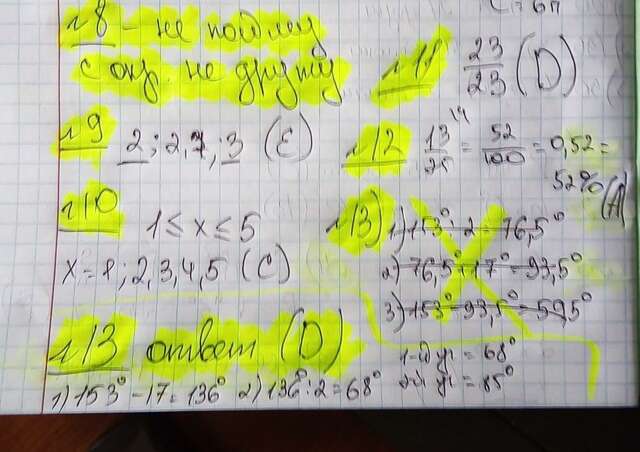 №8 - не пойму
с окр. не дружу
№9 2; 2,7; 3 (E)
№10 1 ≤ x ≤ 5
x = 1; 2, 3, 4, 5 (C)
№11 23/23 (D)
№12 13/25 = 52/100 = 0,52 =
52% (A)
№13) 1) 153° : 2 = 76,5°
2) 76,5° + 17° = 93,5°
3) 153° - 93,5° = 59,5°
№13 ответ (D)
1) 153° - 17 = 136° 2) 136° : 2 = 68°
1-й уг = 68°
2-й уг = 85°